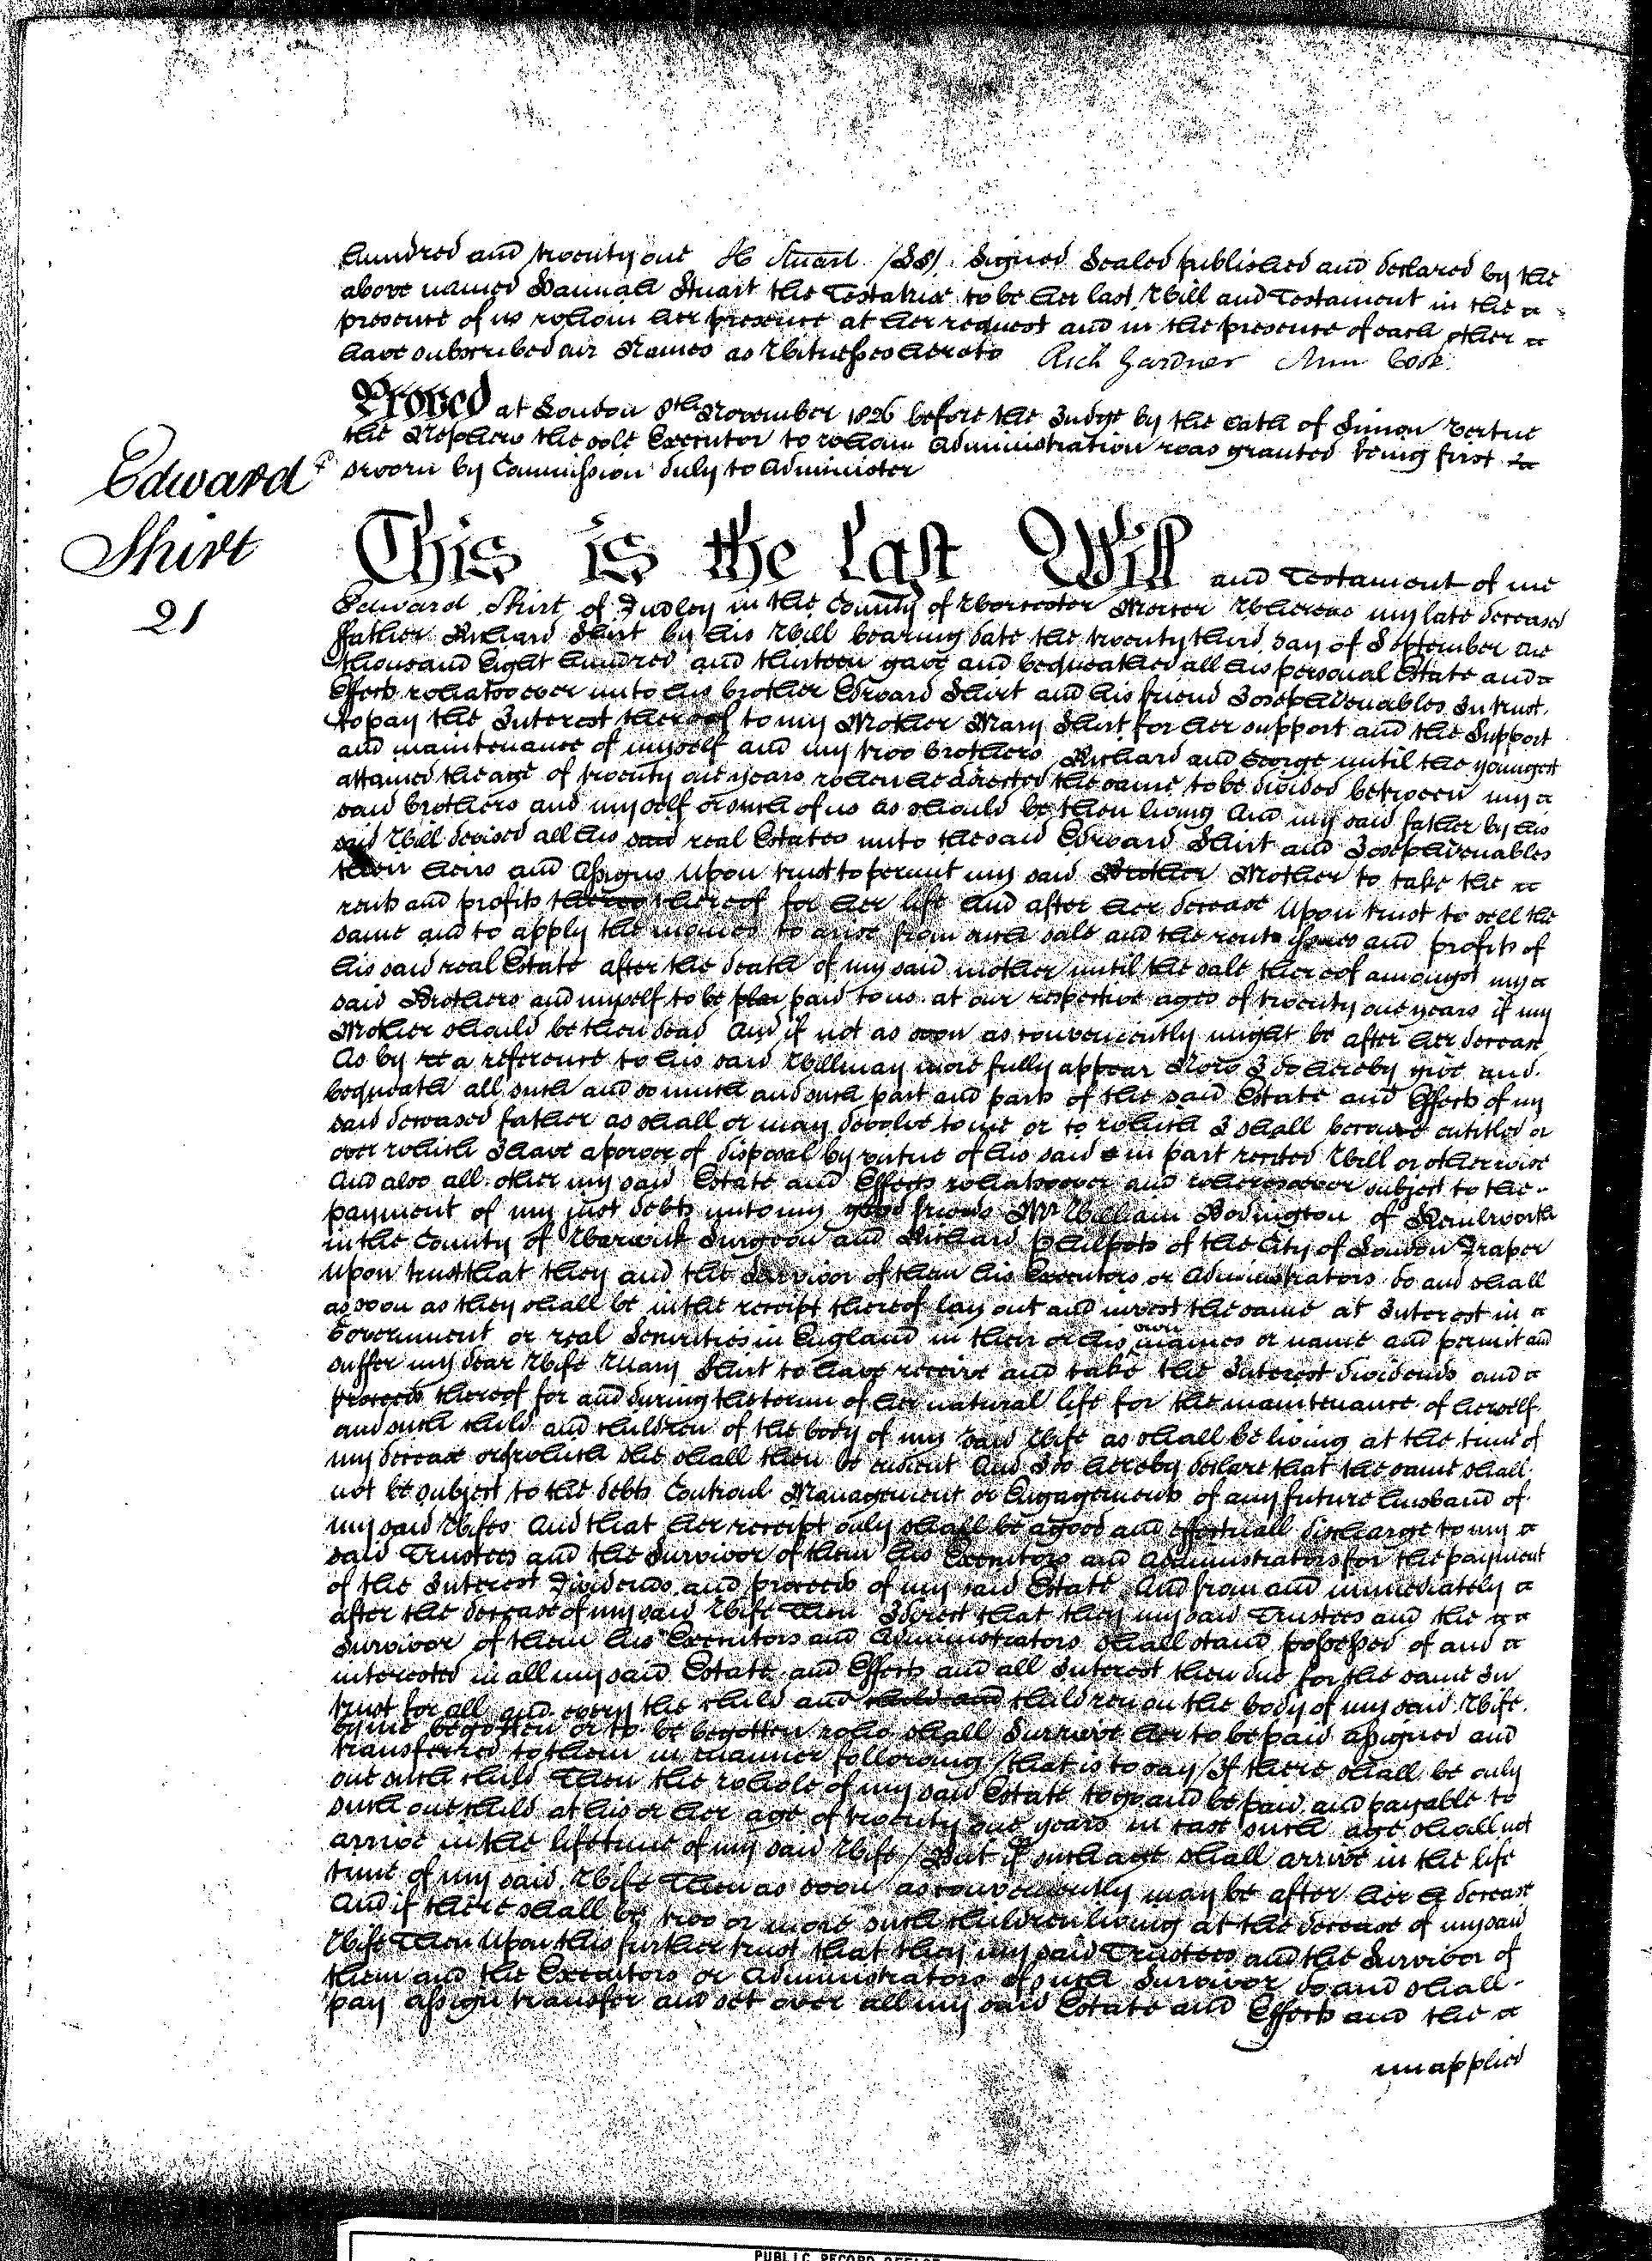 hundred and twenty one H Stuart (SS) Signed Sealed published and declared by the
above named Hannah Stuart the Testatrix to be her last Will and Testament in the
presence of us whom her presence at her request and in the presence of each other
have subscribed our Names as Witnesses hereto Rich Gardner Ann Cook.
Proved at London 8th November 1826 before the Judge by the Oath of Simon Vertue
the Nephew the sole Executor to whom Administration was granted being first
sworn by Commission duly to Administer
Edward
Shirt
21
This is the Last Will and Testament of me
Edward Shirt of Dudley in the County of Worcester Mercer Whereas my late deceased
ffather Richard Shirt by his Will bearing date the twenty third day of September one
thousand Eight hundred and thirteen gave and bequeathed all his personal Estate and
Effects whatsoever unto his brother Edward Shirt and his friend Joseph Venables In trust
to pay the Interest thereof to my Mother Mary Shirt for her support and the Support
and maintenance of myself and my two brothers Richard and George until the youngest
attained the age of twenty one years when he directed the same to be divided between my
said brothers and myself or such of us as should be then living And my said father by his
said Will devised all his said real Estates unto the said Edward Shirt and Joseph Venables
their heirs and Assigns Upon trust to permit my said Brother Mother to take the
rents and profits thereo thereof for her life And after her decease Upon trust to sell the
same and to apply the monies to arise from such sale and the rents issues and profits of
his said real Estate after the death of my said mother until the sale thereof amongst my
said Brothers and myself to be paid to us at our respective ages of twenty one years if my
Mother should be then dead And if not as soon as conveniently might be after her decease
As by a reference to his said Will may more fully appear Now I do hereby give and
bequeath all such and so much and such part and parts of the said Estate and Effects of my
said deceased father as shall or may devolve to me or to which I shall become entitled or
over which I have a power of disposal by virtue of his said in part recited Will or otherwise
And also all other my said Estate and Effects whatsoever and wheresoever subject to the
payment of my just debts unto my good friends Mr William Bodington of Kenilworth
in the County of Warwick Surgeon and Richard Philpots of the City of London Draper
Upon trust that they and the Survivor of them his Executors or Administrators do and shall
as soon as they shall be in the receipt thereof lay out and invest the same at Interest in
Government or real Securities in England in their or his own names or name and permit and
suffer my dear Wife Mary Shirt to have receive and take the Interest dividends and
proceeds thereof for and during the term of her natural life for the maintenance of herself
and such child and children of the body of my said Wife as shall be living at the time of
my decease or of which she shall then be enceint And I do hereby declare that the same shall
not be subject to the debts Controul Management or Engagements of any future husband of
my said Wifes And that her receipt only shall be a good and effectuall discharge to my
said Trustees and the Survivor of them his Executors and Administrators for the payment
of the Interest Dividends and proceeds of my said Estate And from and immediately
after the decease of my said Wife Then I direct that they my said Trustees and the
Survivor of them his Executors and Administrators shall stand possessed of and
interested in all my said Estate and Effects and all Interest then due for the same In
trust for all and every the child and child and children on the body of my said Wife
by me begotten or to be begotten who shall Survive her to be paid assigned and
transferred to them in manner following (that is to say) If there shall be only
one such child Then the whole of my said Estate to go and be paid and payable to
such one child at his or her age of twenty one years in case such age shall not
arrive in the lifetime of my said Wife / But if such age shall arrive in the life
time of my said Wife Then as soon as conveniently may be after her decease
And if there shall be two or more such children living at the decease of my said
Wife Then Upon this further trust that they my said Trustees and the Survivor of
them and the Executors or Administrators of such Survivor do and shall
pay assign transfer and set over all my said Estate and Effects and the
unapplied
PUBLIC RECORD OFFICE